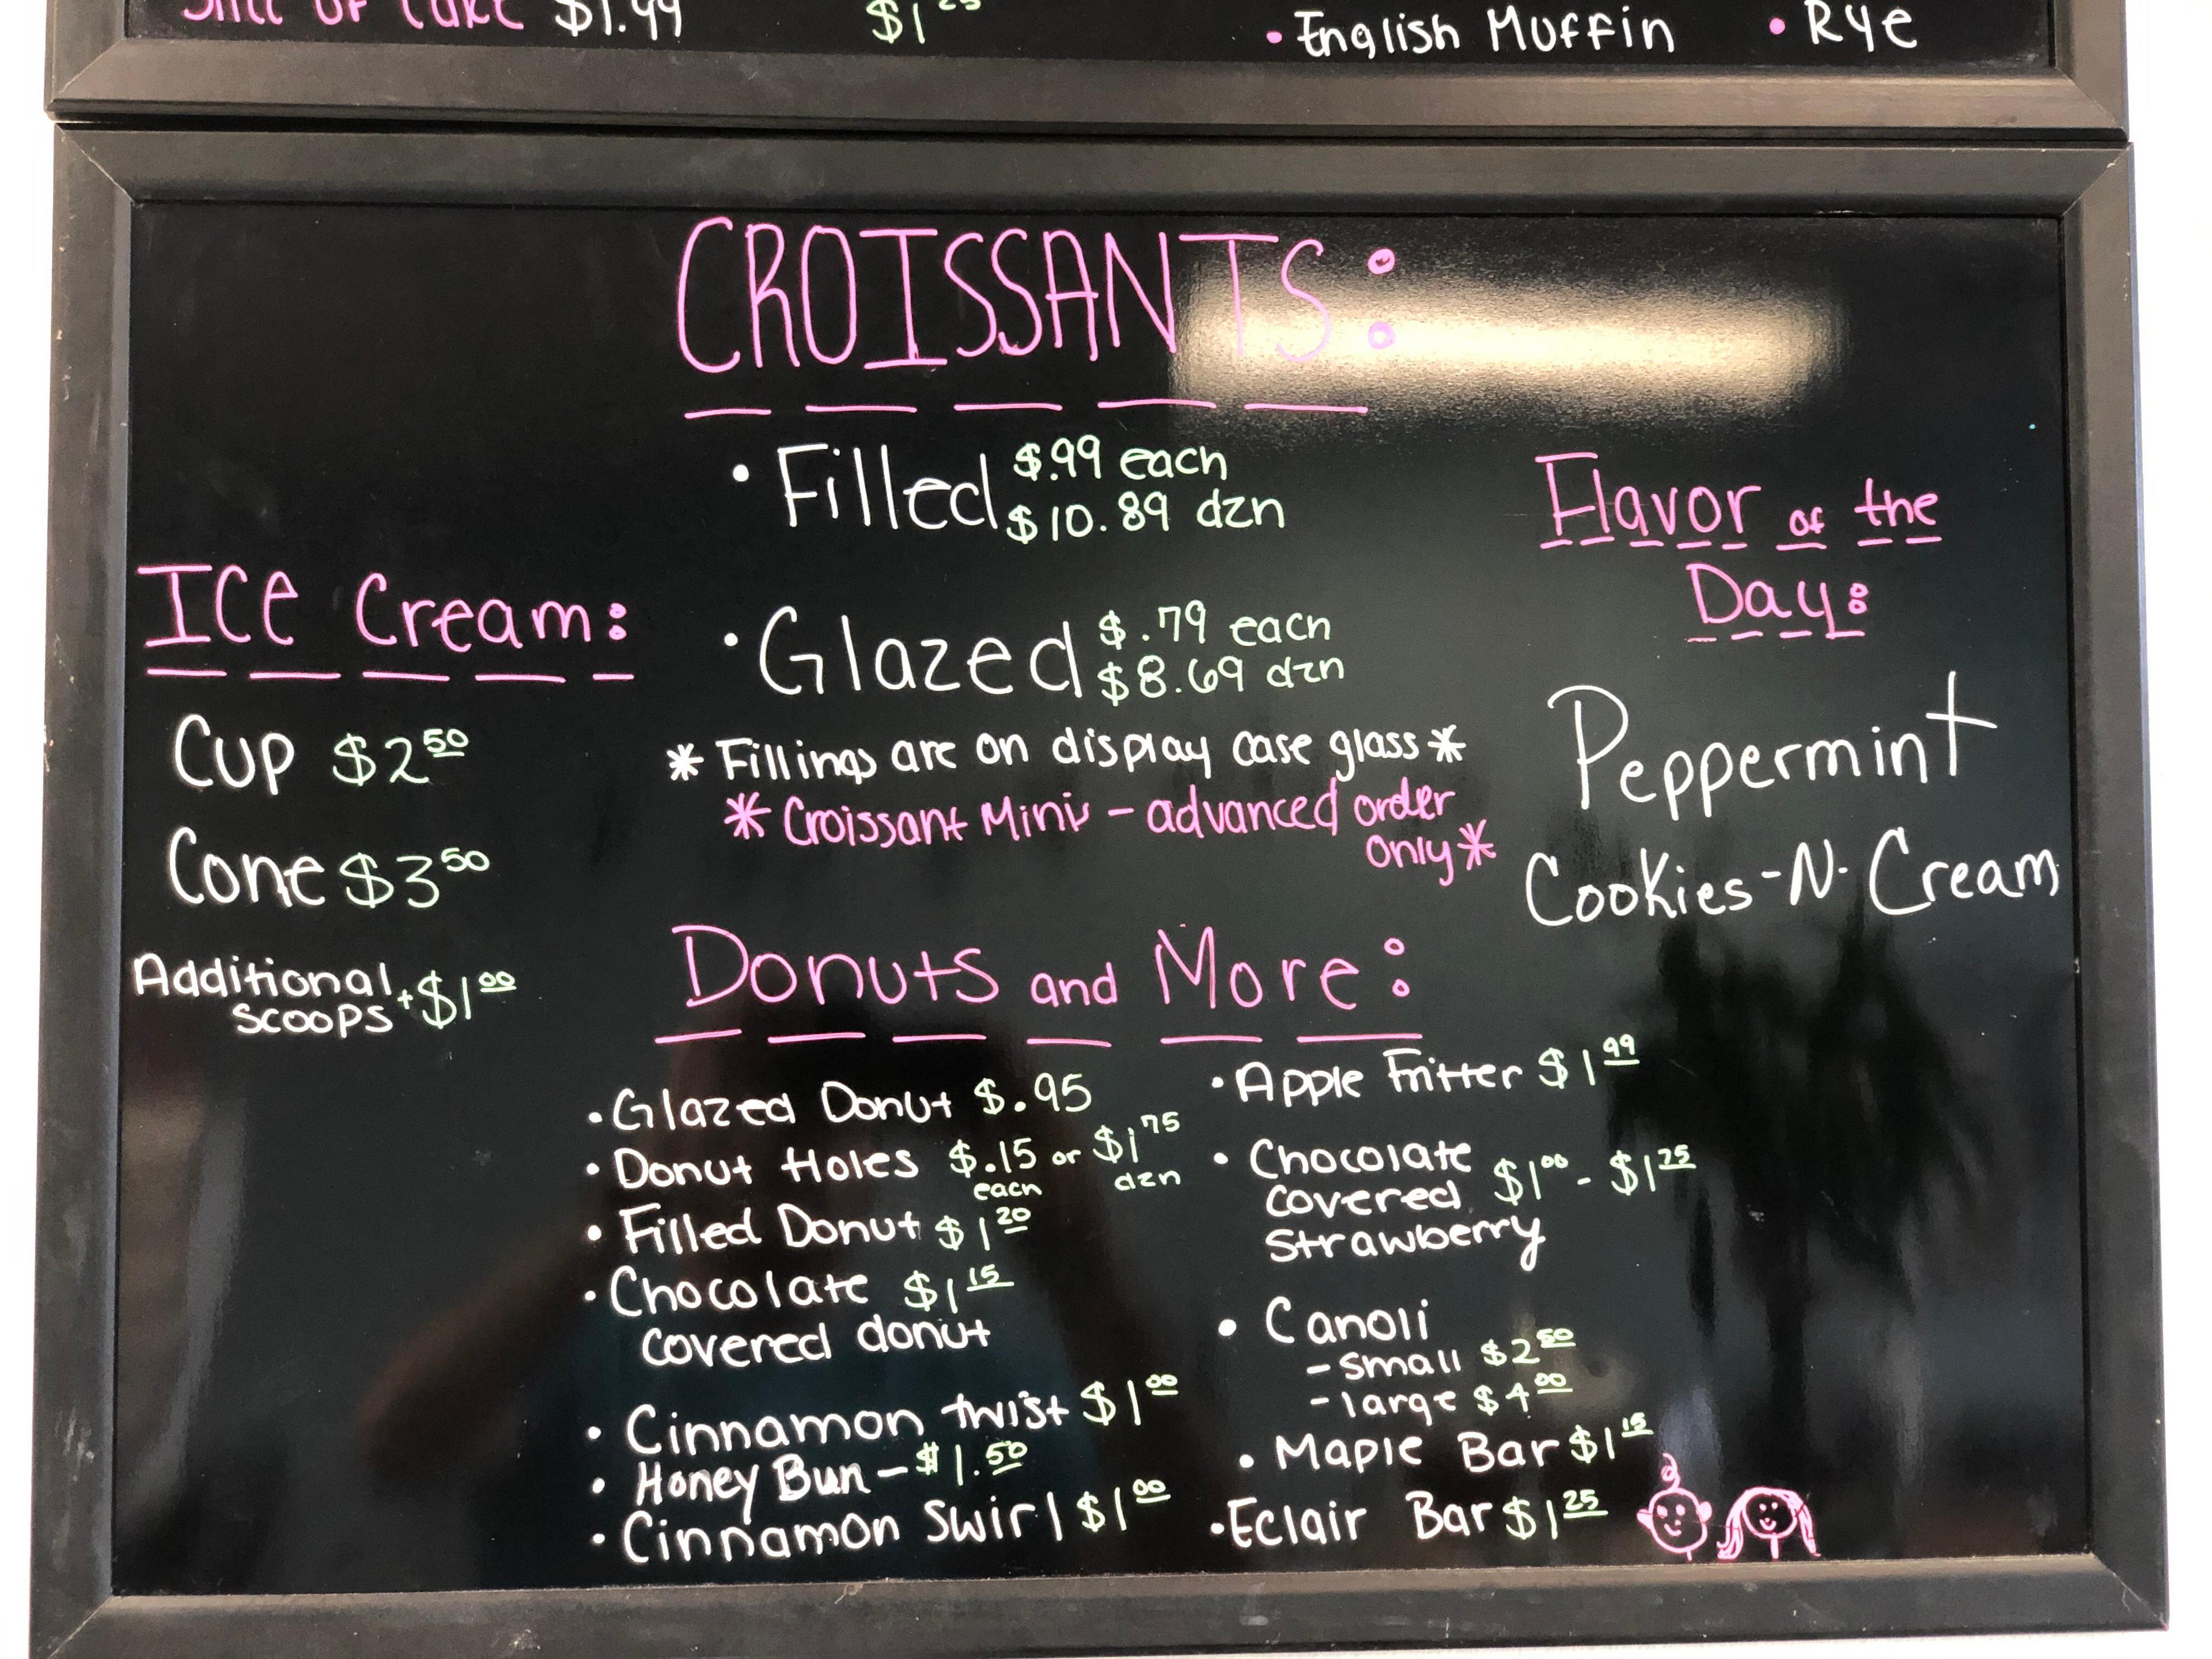 Slice of Cake $1.99
$1 25
• English Muffin • Rye
CROISSANTS:
• Filled $.99 each
$10.89 dzn
• Glazed $.79 each
$8.69 dzn
* Fillings are on display case glass *
* Croissant Minis - advanced order
only *
Ice Cream:
Cup $2 50
Cone $3 50
Additional
scoops + $1 00
Flavor of the
Day:
Peppermint
Cookies-N-Cream
Donuts and More:
• Glazed Donut $.95
• Donut Holes $.15 or $1 75
each dzn
• Filled Donut $1 20
• Chocolate $1 15
covered donut
• Cinnamon twist $1 00
• Honey Bun - $1.50
• Cinnamon Swirl $1 00
• Apple Fritter $1 99
• Chocolate
covered $1 00 - $1 25
Strawberry
• Canoli
- small $2 50
- large $4 00
• Maple Bar $1 15
• Eclair Bar $1 25